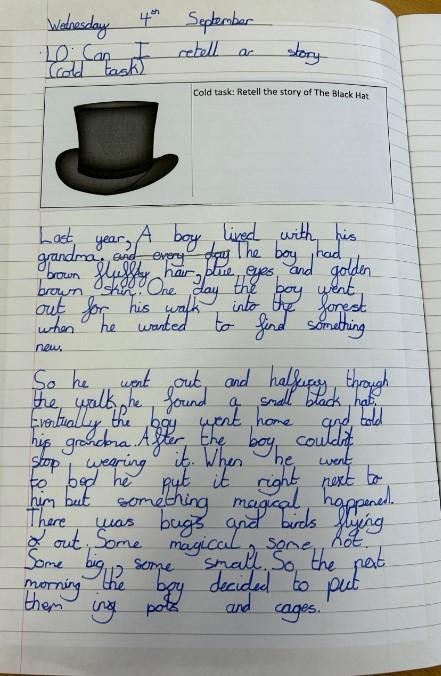 Wednesday 4th September
LO: Can I retell a story
(cold task)
Cold task: Retell the story of The Black Hat
Last year, A boy lived with his
grandma. and every day The boy had
brown fluffly hair, blue eyes and golden
brown skin. One day the boy went
out for his walk into the forest
when he wanted to find something
new.
So he went out and halfway through
the walk he found a small black hat.
Eventually the boy went home and told
his grandma. After the boy couldn't
stop wearing it. When he went
to bed he put it right next to
him but something magical happened.
There was bugs and birds flying
out. Some magical, some not.
Some big, some small. So the next
morning the boy decided to put
them in pots and cages.